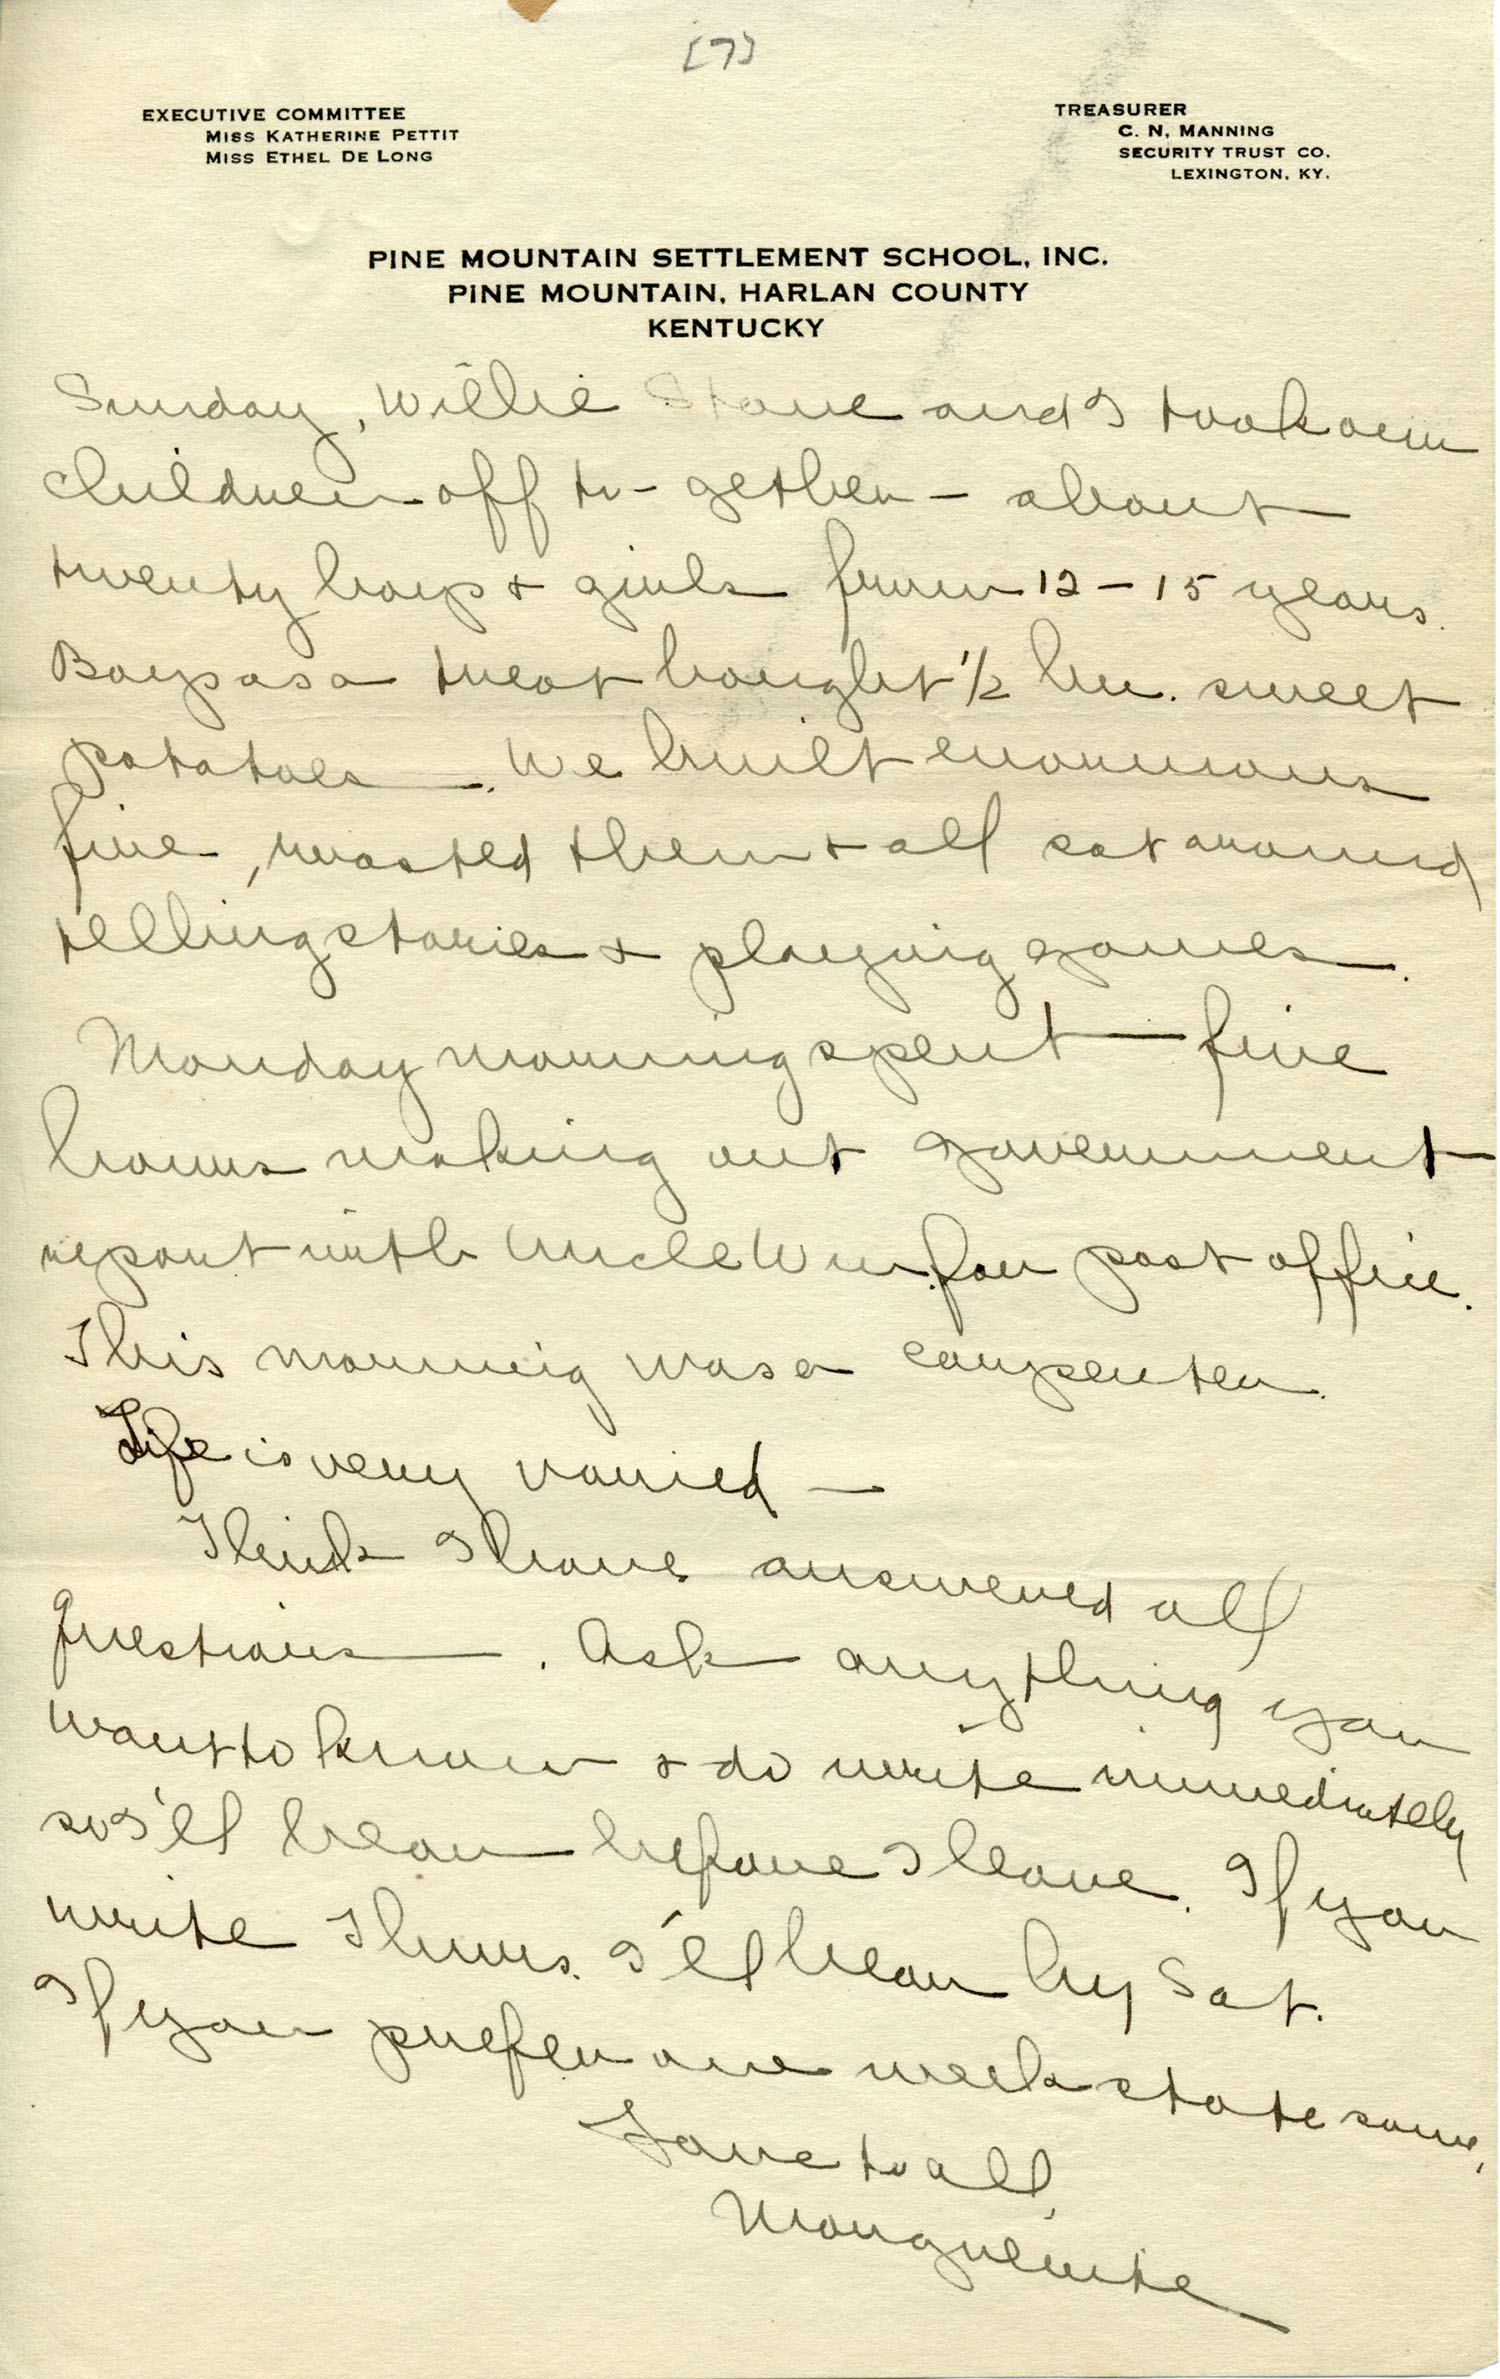 [7]
EXECUTIVE COMMITTEE
MISS KATHERINE PETTIT
MISS ETHEL DE LONG
TREASURER
C. N. MANNING
SECURITY TRUST CO.
LEXINGTON, KY.
PINE MOUNTAIN SETTLEMENT SCHOOL, INC.
PINE MOUNTAIN, HARLAN COUNTY
KENTUCKY
Sunday, Willie Stone and I took our
children off to-gether – about
twenty boys & girls from 12 – 15 years.
Boys as a treat bought 1/2 bu. sweet
potatoes. We built enormous
fire, roasted them & all sat around
telling stories & playing games.
Monday morning spent – five
hours making out government
report with Uncle Wm. for post office.
This morning was a carpenter.
Life is very varied –
Think I have answered all
questions. Ask anything you
want to know & do write immediately
so I'll hear before I leave. If you
write Thurs. I'll hear by Sat.
If you prefer one week state same,
Love to all,
Marguerite